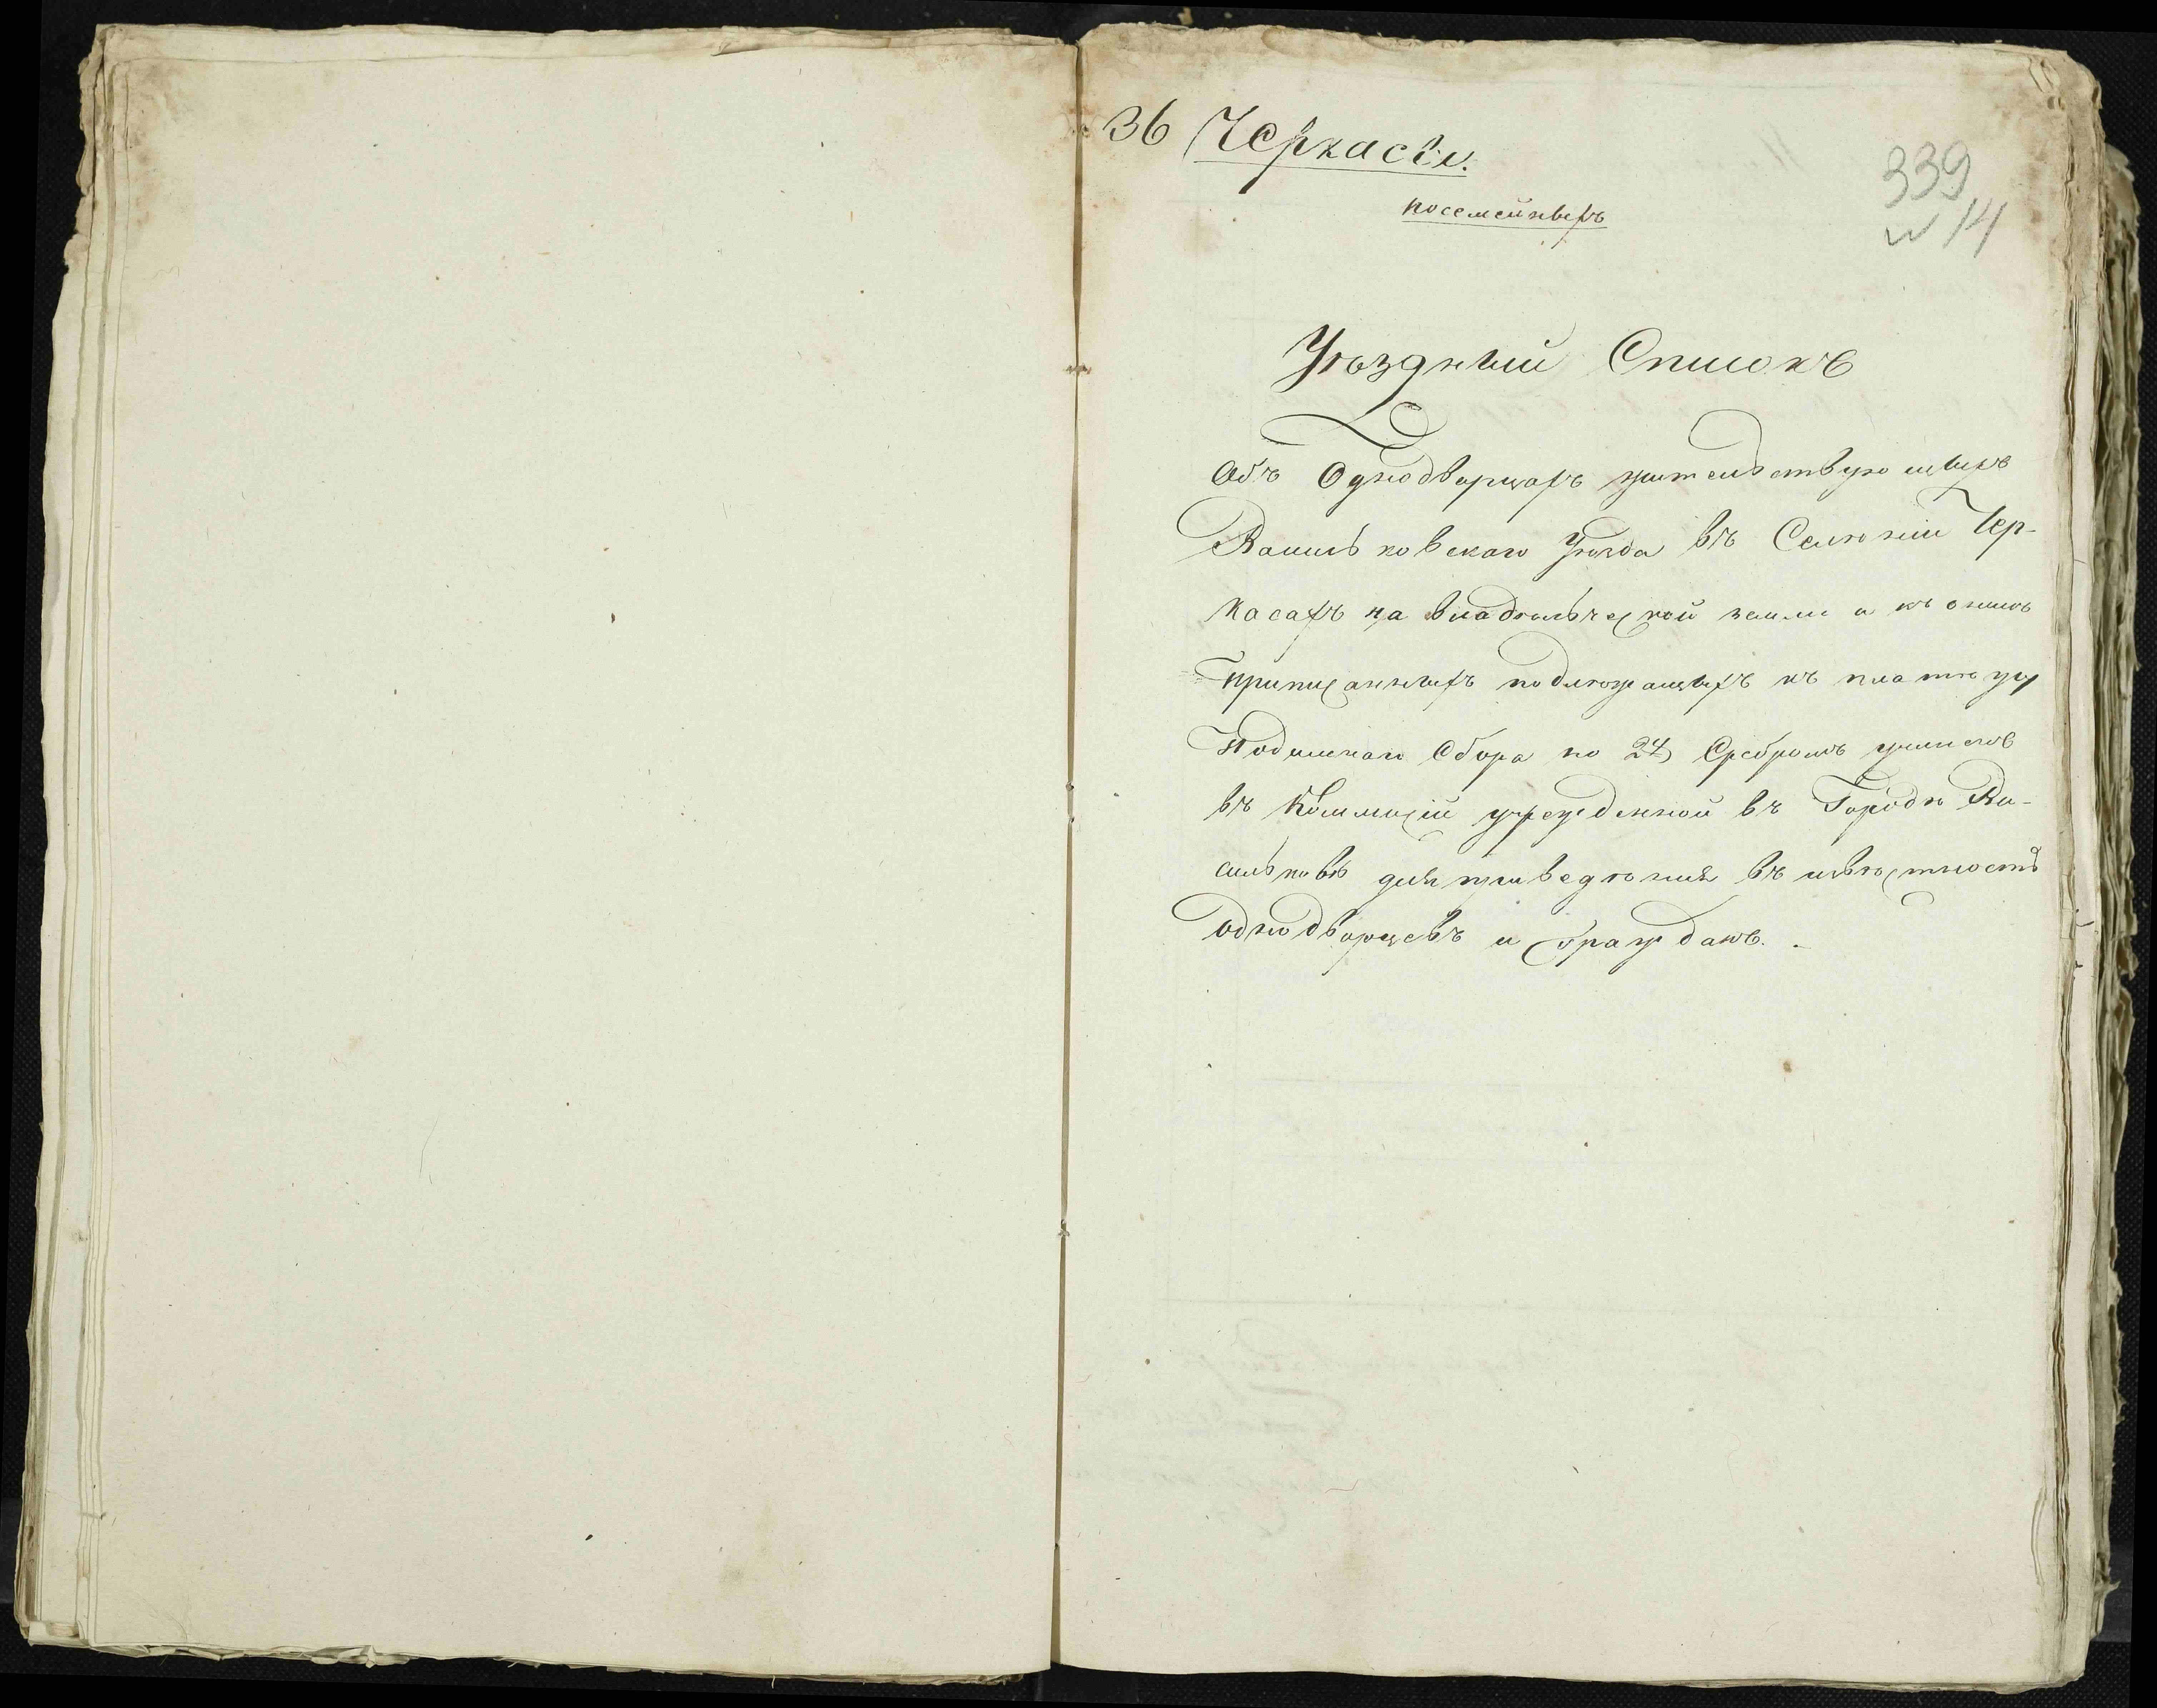 36 Черкасы.
339
№ 14
посемейныхъ
Уѣздный Списокъ
Объ Однодворцахъ жительствующихъ
Васильковскаго Уѣзда въ Селѣніи Чер-
касахъ на владѣльческой земли и къ онимъ
приписанныхъ подлѣжащихъ къ платѣжу
Подымнаго Сбора по 24 Сребромъ
въ Коммисіи учрежденной въ Городѣ Ва-
сильковѣ для приведѣнія въ извѣстность
однодворцевъ и гражданъ.